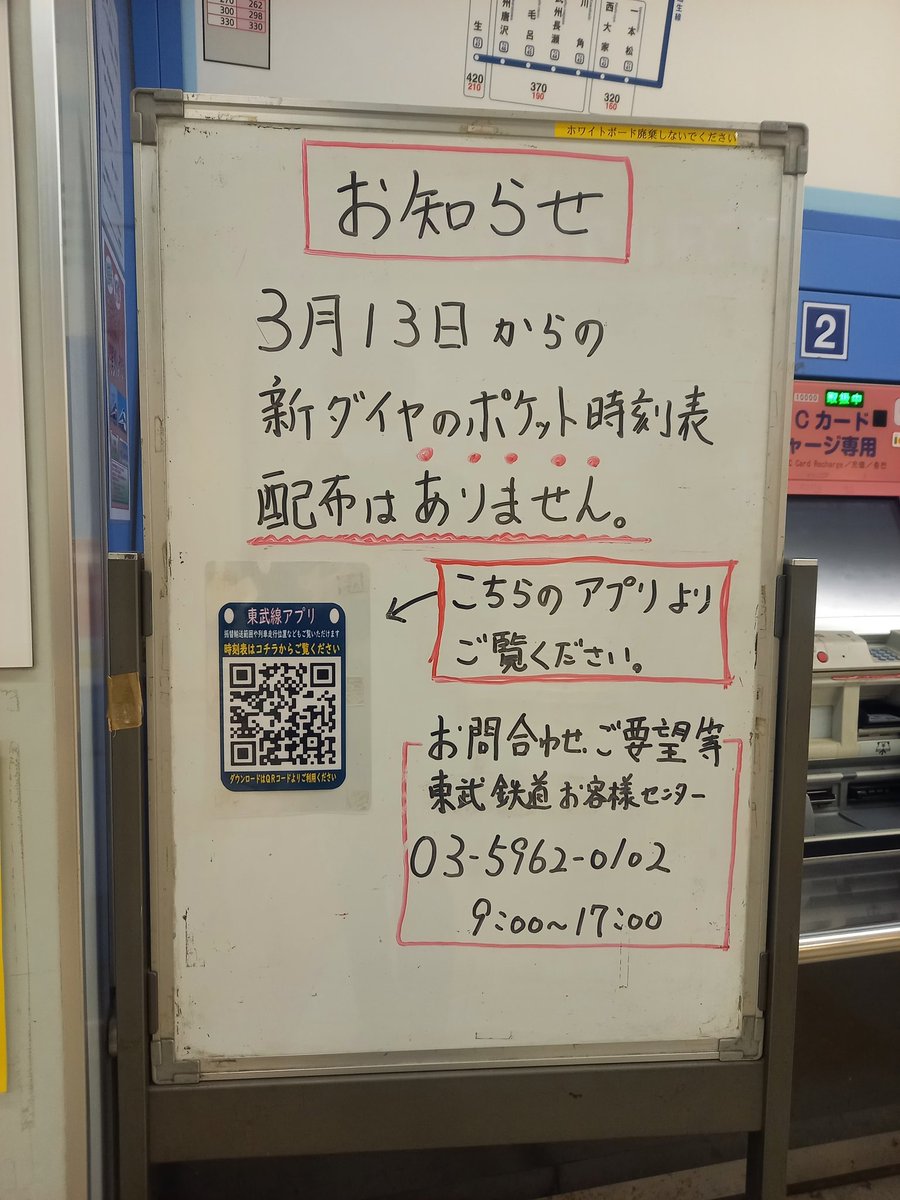 270 262
300 298
330 330
生
420
210
州唐沢
毛呂
武州長瀬
川角
370
190
西大家
一本松
320
160
生線
ホワイトボード廃棄しないでください
お知らせ
3月13日からの
新ダイヤのポケット時刻表
配布はありません。
こちらのアプリより
ご覧ください。
東武線アプリ
振替輸送範囲や列車走行位置などもご覧いただけます
時刻表はコチラからご覧ください
ダウンロードはQRコードよりご利用ください
お問合わせ、ご要望等
東武鉄道お客様センター
03-5962-0102
9:00~17:00
2
10000
取扱中
Cカード
ャージ専用
C Card Recharge／充值／충전